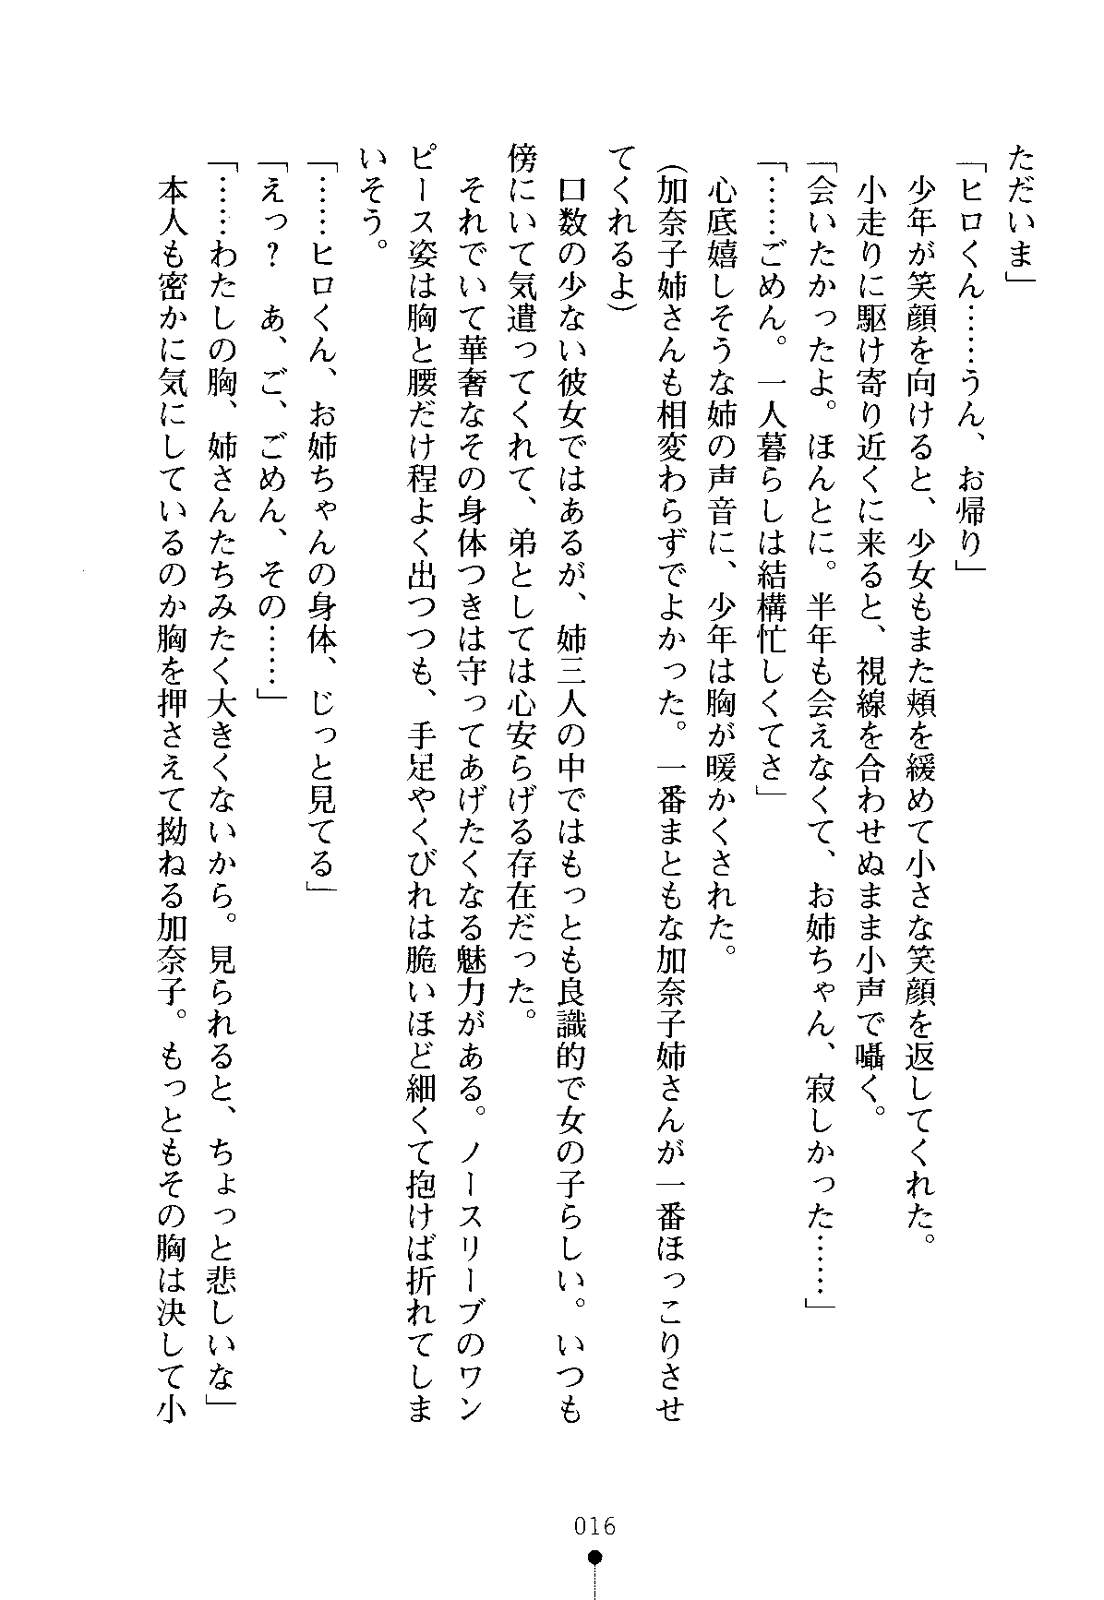 ただいま」
「ヒロくん……うん、お帰り」
少年が笑顔を向けると、少女もまた頬を緩めて小さな笑顔を返してくれた。
小走りに駆け寄り近くに来ると、視線を合わせぬまま小声で囁く。
「会いたかったよ。ほんとに。半年も会えなくて、お姉ちゃん、寂しかった……」
「……ごめん。一人暮らしは結構忙しくてさ」
心底嬉しそうな姉の声音に、少年は胸が暖かくされた。
(加奈子姉さんも相変わらずでよかった。一番まともな加奈子姉さんが一番ほっこりさせ
てくれるよ)
口数の少ない彼女ではあるが、姉三人の中ではもっとも良識的で女の子らしい。いつも
傍にいて気遣ってくれて、弟としては心安らげる存在だった。
それでいて華奢なその身体つきは守ってあげたくなる魅力がある。ノースリーブのワン
ピース姿は胸と腰だけ程よく出つつも、手足やくびれは脆いほど細くて抱けば折れてしま
いそう。
「……ヒロくん、お姉ちゃんの身体、じっと見てる」
「えっ？　あ、ご、ごめん、その……」
「……わたしの胸、姉さんたちみたく大きくないから。見られると、ちょっと悲しいな」
本人も密かに気にしているのか胸を押さえて拗ねる加奈子。もっともその胸は決して小
016